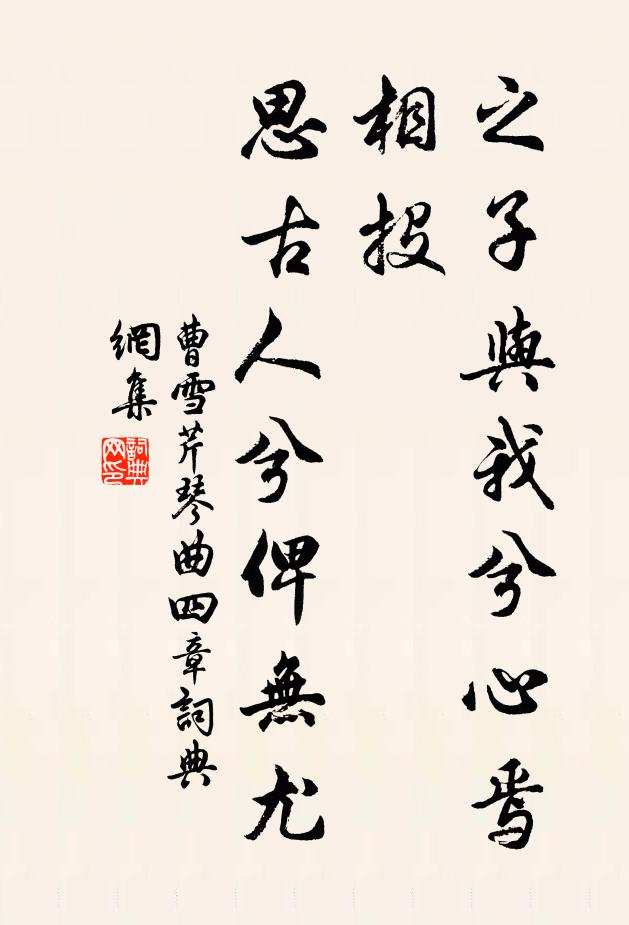 之子與我兮心焉
相投
思古人兮俾無尤
曹雪芹琴曲四章詞典
網集
詞典
网印